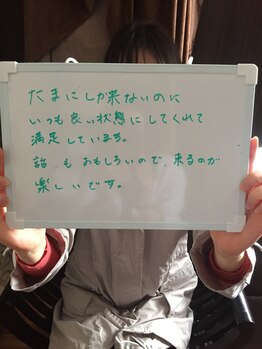 たまにしか来ないのに
いつも良い状態にしてくれて
満足しています。
話もおもしろいので、来るのが
楽しいです。